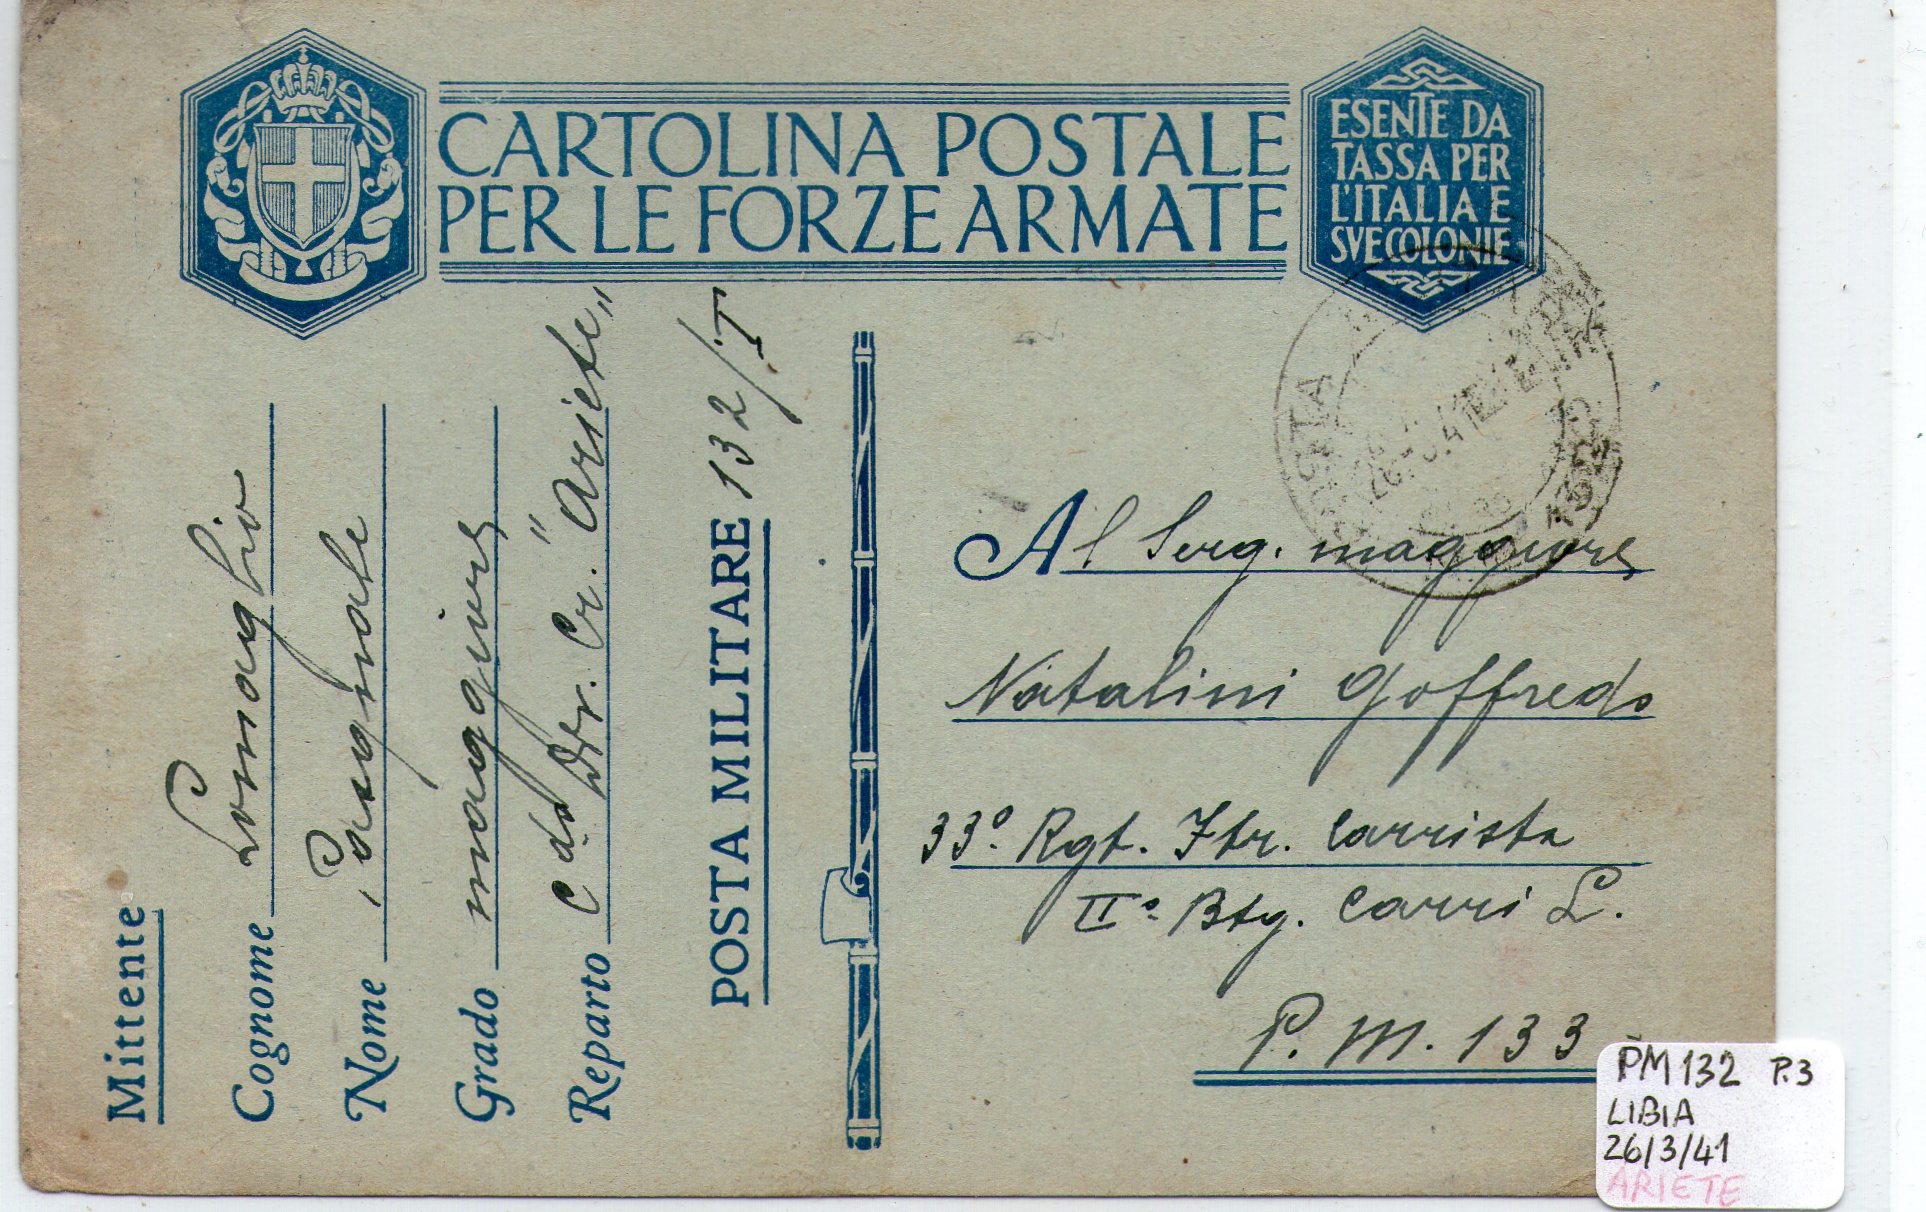 CARTOLINA POSTALE
PER LE FORZE ARMATE
ESENTE DA
TASSA PER
L'ITALIA E
SVE COLONIE
Mittente
Cognome Lomaglio
Nome Pasquale
Grado maggiore
Reparto C.do Dr. Cr. "Ariete"
POSTA MILITARE 132/T
POSTA
26.3.41
Al Serg. maggiore
Natalini Goffredo
33º Rgt. Ftr. Carrista
IIº Btg. Carri L.
P. M. 133
PM 132 P.3
LIBIA
26/3/41
ARIETE